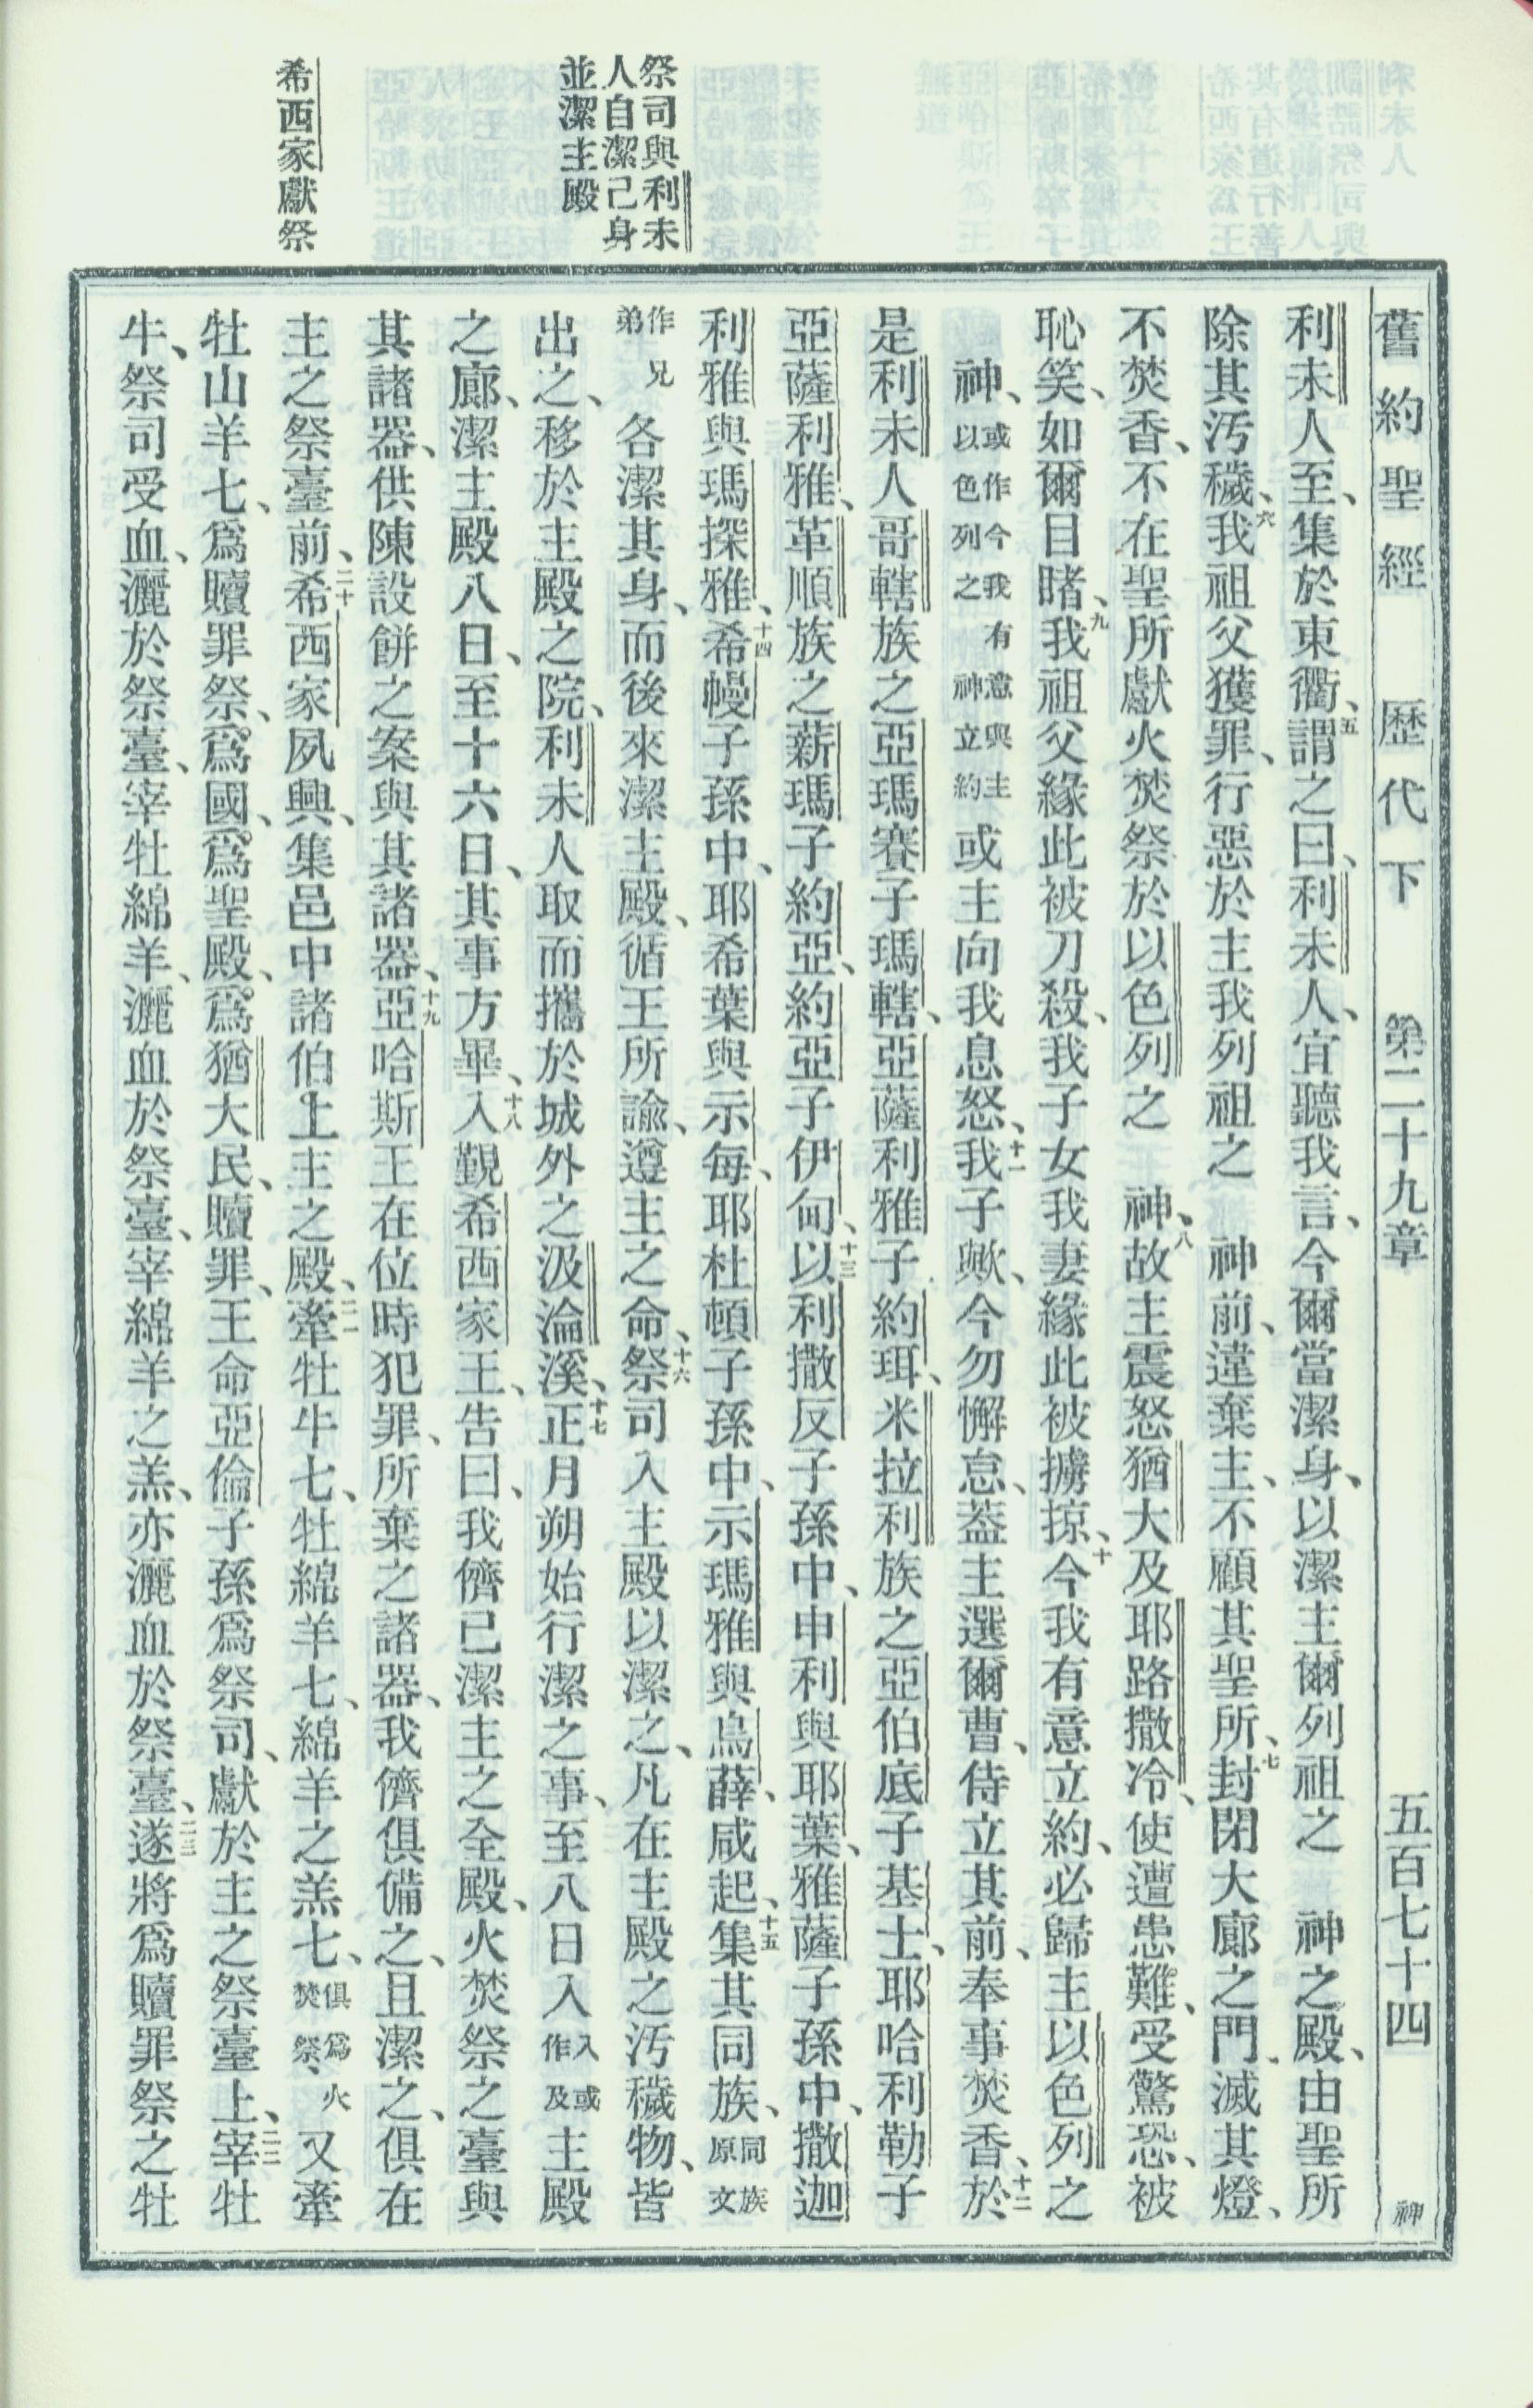 祭司與利未
人自潔己身
並潔主殿
希西家獻祭
舊約聖經 歷代下 第二十九章 五百七十四 神
利未人至、集於東衢、五謂之曰、利未人、宜聽我言、今爾當潔身、以潔主爾列祖之 神之殿、由聖所
除其汚穢、六我祖父獲罪、行惡於主我列祖之 神前、違棄主、不顧其聖所、七封閉大廊之門、滅其燈、
不焚香、不在聖所獻火焚祭於以色列之 神、八故主震怒猶大及耶路撒冷、使遭患難、受驚恐、被
恥笑、如爾目睹、九我祖父緣此被刀殺、我子女我妻緣此被擄掠、十今我有意立約、必歸主以色列之
神、或作今我有意與主以色列之神立約或主向我息怒、十一我子歟、今勿懈怠、蓋主選爾曹、侍立其前、奉事焚香、十二於
是利未人哥轄族之亞瑪賽子瑪轄、亞薩利雅子約珥、米拉利族之亞伯底子基士、耶哈利勒子
亞薩利雅、革順族之薪瑪子約亞、約亞子伊甸、十三以利撒反子孫中、申利與耶葉、雅薩子孫中、撒迦
利雅與瑪探雅、十四希幔子孫中、耶希葉與示每、耶杜頓子孫中、示瑪雅與烏薛、咸起、十五集其同族、同族原文
作兄弟各潔其身、而後來潔主殿、循王所諭、遵主之命、十六祭司入主殿以潔之、凡在主殿之汚穢物、皆
出之、移於主殿之院、利未人取而攜於城外之汲淪溪、十七正月朔始行潔之事、至八日入入或作及主殿
之廊、潔主殿八日、至十六日、其事方畢、十八入覲希西家王、告曰、我儕已潔主之全殿、火焚祭之臺與
其諸器、供陳設餅之案與其諸器、十九亞哈斯王在位時犯罪、所棄之諸器、我儕俱備之、且潔之、俱在
主之祭臺前、二十希西家夙興、集邑中諸伯、上主之殿、二一牽牡牛七、牡綿羊七、綿羊之羔七、俱爲火焚祭、又牽
牡山羊七、爲贖罪祭、爲國、爲聖殿、爲猶大民、贖罪、王命亞倫子孫爲祭司、獻於主之祭臺上、二二宰牡
牛、祭司受血、灑於祭臺、宰牡綿羊、灑血於祭臺、宰綿羊之羔、亦灑血於祭臺、二三遂將爲贖罪祭之牡